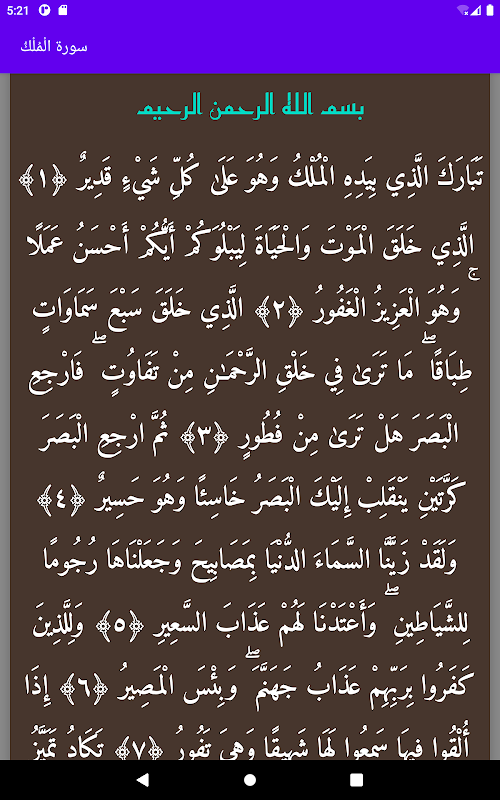 5:21
سورة الْمُلْكُ
بسم الله الرحمن الرحيم
تَبَارَكَ الَّذِي بِيَدِهِ الْمُلْكُ وَهُوَ عَلَىٰ كُلِّ شَيْءٍ قَدِيرٌ ﴿١﴾
الَّذِي خَلَقَ الْمَوْتَ وَالْحَيَاةَ لِيَبْلُوَكُمْ أَيُّكُمْ أَحْسَنُ عَمَلًا ۚ
وَهُوَ الْعَزِيزُ الْغَفُورُ ﴿٢﴾ الَّذِي خَلَقَ سَبْعَ سَمَاوَاتٍ
طِبَاقًا ۖ مَا تَرَىٰ فِي خَلْقِ الرَّحْمَٰنِ مِنْ تَفَاوُتٍ ۖ فَارْجِعِ
الْبَصَرَ هَلْ تَرَىٰ مِنْ فُطُورٍ ﴿٣﴾ ثُمَّ ارْجِعِ الْبَصَرَ
كَرَّتَيْنِ يَنْقَلِبْ إِلَيْكَ الْبَصَرُ خَاسِئًا وَهُوَ حَسِيرٌ ﴿٤﴾
وَلَقَدْ زَيَّنَّا السَّمَاءَ الدُّنْيَا بِمَصَابِيحَ وَجَعَلْنَاهَا رُجُومًا
لِلشَّيَاطِينِ ۖ وَأَعْتَدْنَا لَهُمْ عَذَابَ السَّعِيرِ ﴿٥﴾ وَلِلَّذِينَ
كَفَرُوا بِرَبِّهِمْ عَذَابُ جَهَنَّمَ ۖ وَبِئْسَ الْمَصِيرُ ﴿٦﴾ إِذَا
أُلْقُوا فِيهَا سَمِعُوا لَهَا شَهِيقًا وَهِيَ تَفُورُ ﴿٧﴾ تَكَادُ تَمَيَّزُ